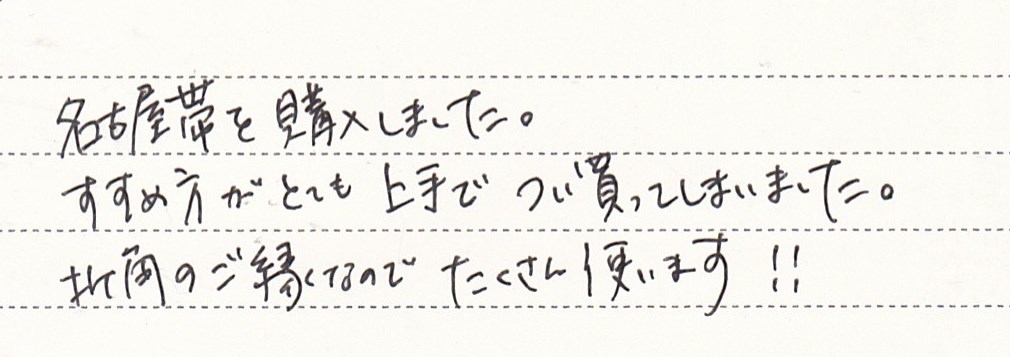 名古屋帯を購入しました。
すすめ方がとても上手でつい買ってしまいました。
折角のご縁なのでたくさん使います!!